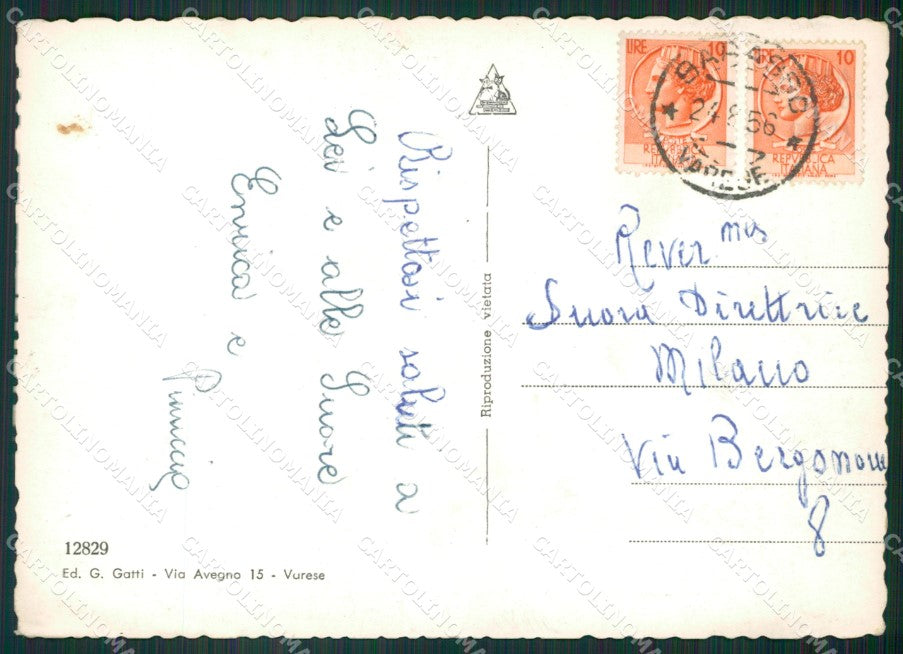 Rispettosi saluti a
Lei e alle Suore
Enrica e
Riproduzione vietata
LIRE 10
10
REPVBBLICA
ITALIANA
VARESE
Rever.mes
Suora Direttrice
Milano
Via Bergognone
8
12829
Ed. G. Gatti - Via Avegno 15 - Varese
CARTOLINOMANIA